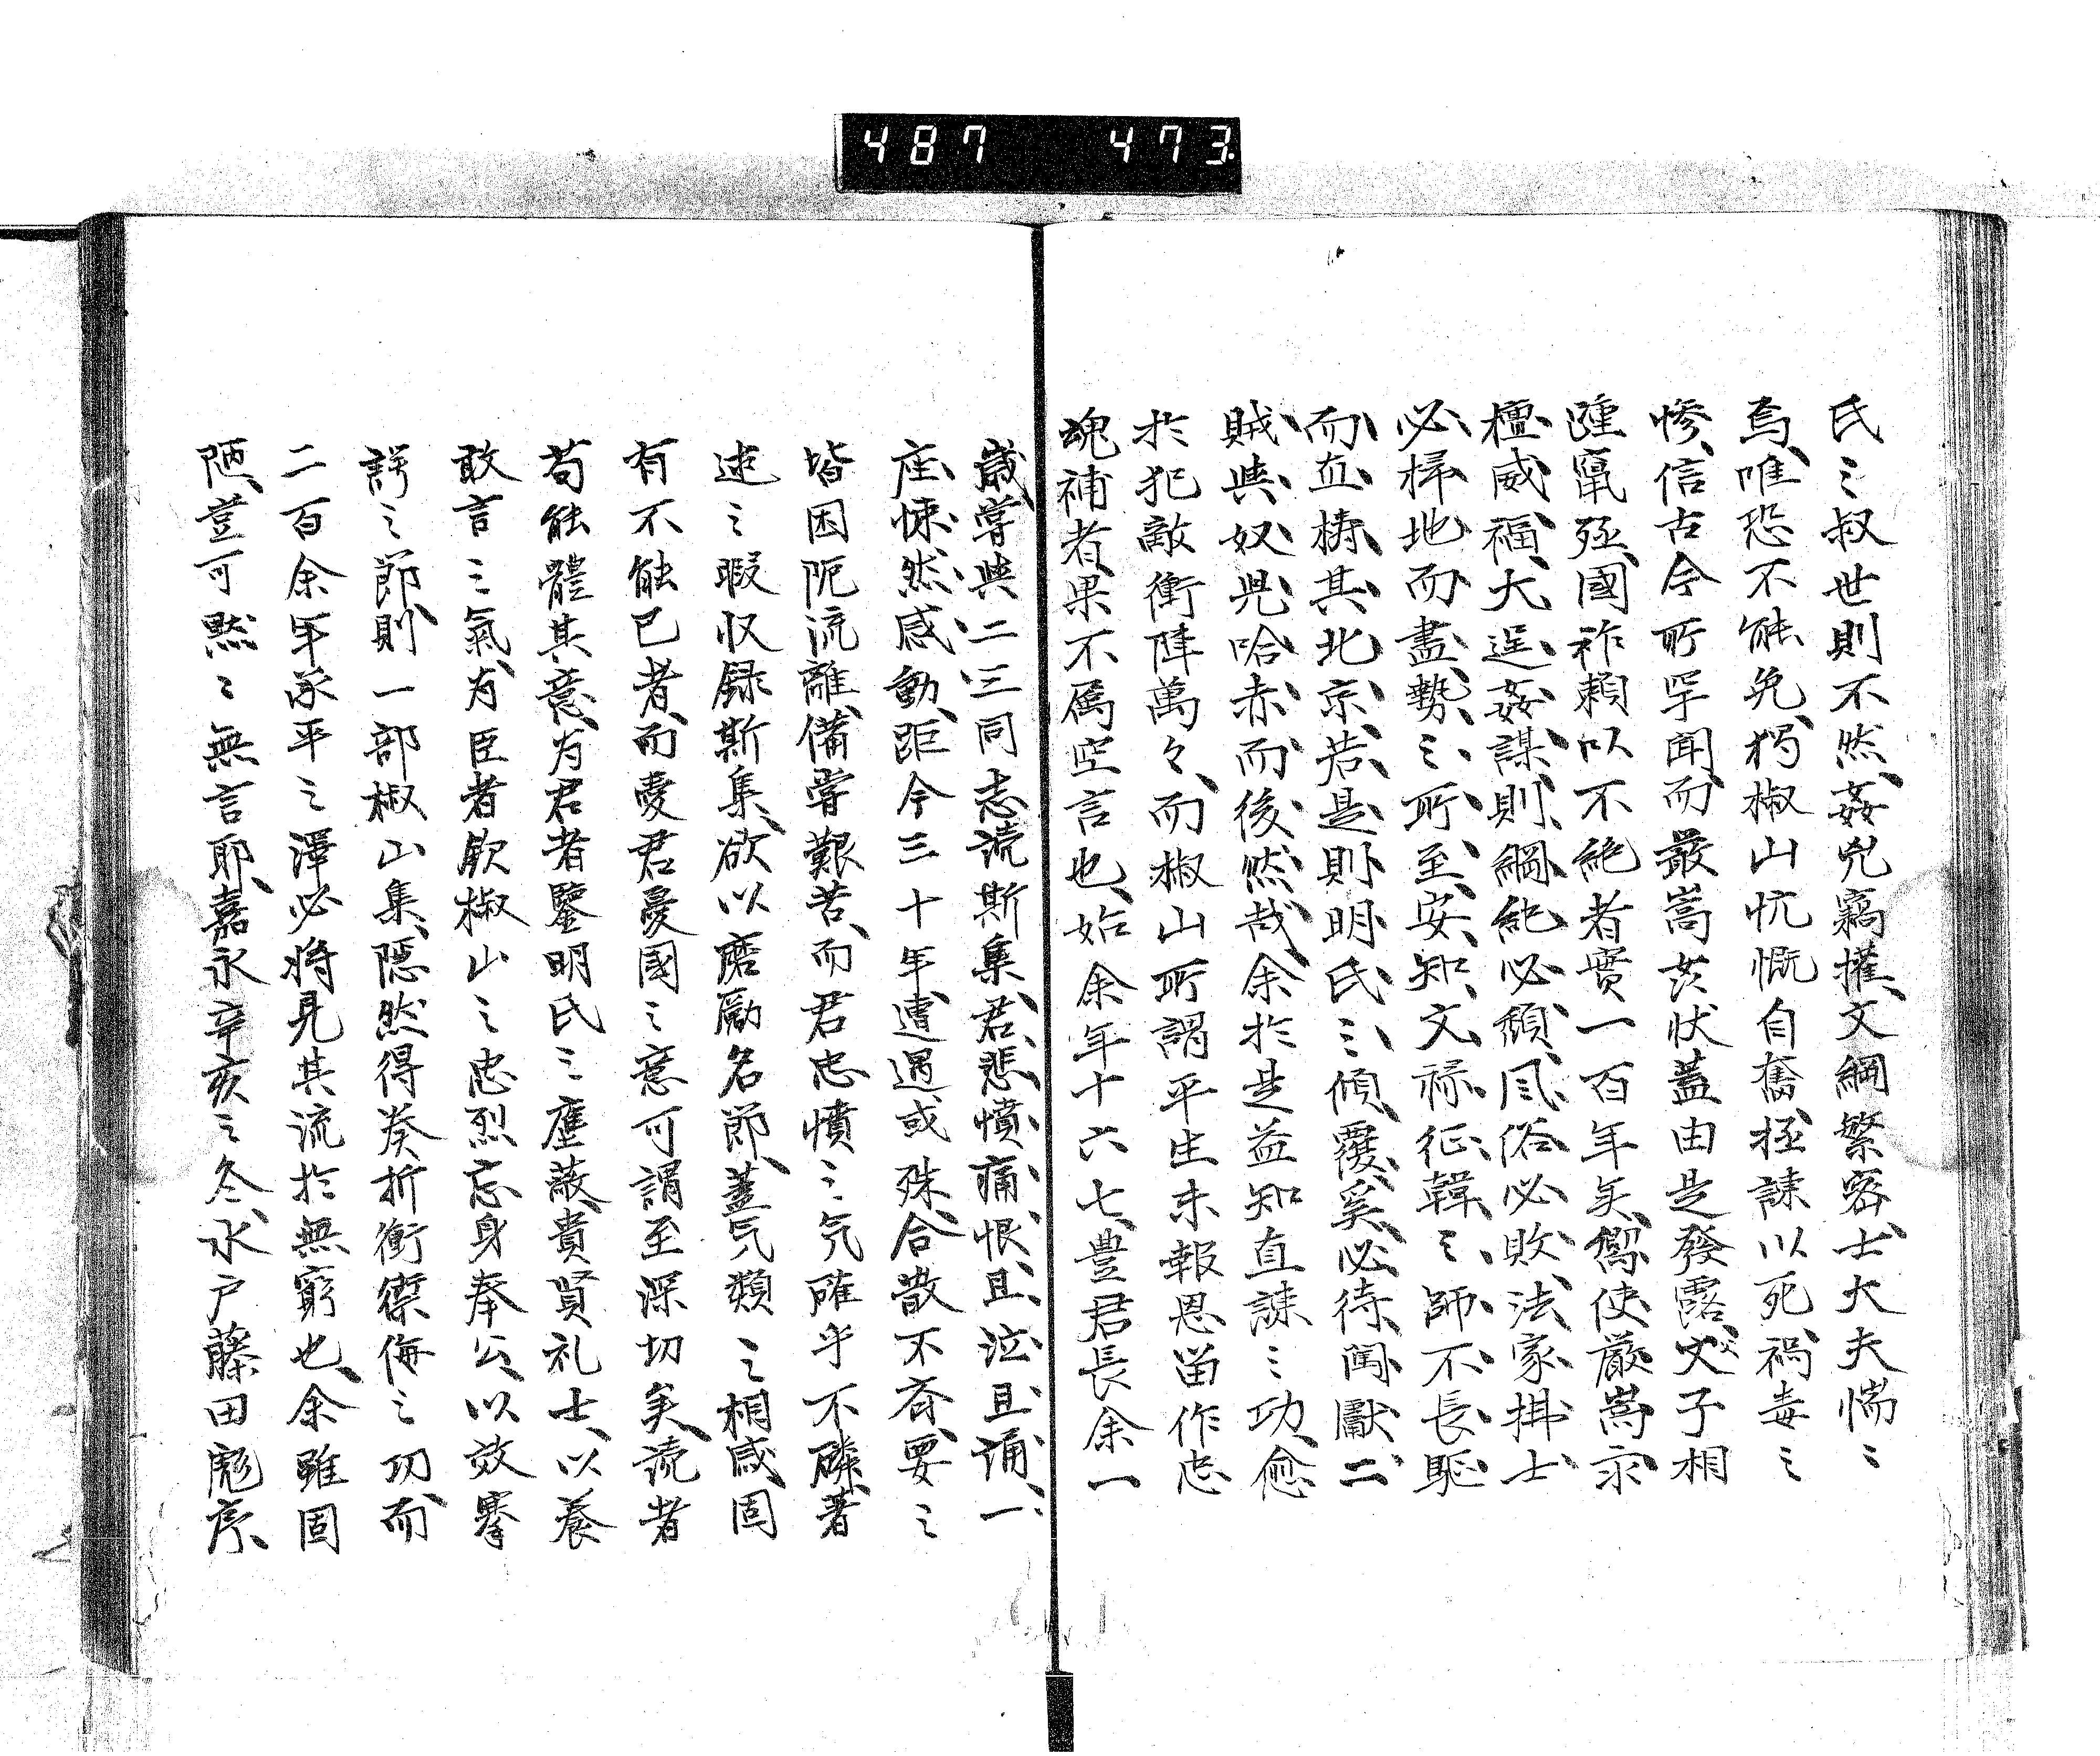 487 473.
氏之叔世則不然、姦兇竊權、文網繁密、士大夫惴〻
焉、唯恐不能免、獨椒山忼慨自奮、拯諌以死、禍毒之
惨、信古今所罕聞、而嚴嵩茨状蓋由是發露、父子相
踵竄殛、國祚賴以不絶者實一百年矣、嚮使嚴嵩永
檀威福、大逞姦謀、則綱紀必頽、風俗必敗、法家拂士
必掃地而盡、勢之所至、安知文禄征韓之師不長駆
而直擣其北京、若是則明氏之傾覆、奚必待闖獻二
賊與奴児哈赤而後然哉、余於是益知直諌之功、愈
於犯敵衝陣萬々、而椒山所謂平生未報恩留作忠
魂補者、果不属空言也、始余年十六七、豊君長余一
歳、嘗與二三同志読斯集、君悲憤痛恨、且泣且誦、一
座悚然感動、距今三十年、遭遇或殊、合散不斉、要之
皆困阨流離、備嘗艱苦、而君忠憤之気確乎不磷、著
述之暇収録斯集、欲以磨勵名節、蓋気類之相感、固
有不能已者、而愛君憂國之意可謂至深切矣、読者
苟能體其意、为君者鑒明氏之壅蔽、貴賢礼士、以養
敢言之氣、为臣者欽椒山之忠烈、忘身奉公、以效謇
諤之節、則一部椒山集、隠然得奏折衝禦侮之功、而
二百余年承平之澤必将見其流於無窮也、余雖固
陋、豈可黙〻無言耶、嘉永辛亥之冬、水戸藤田彪序、